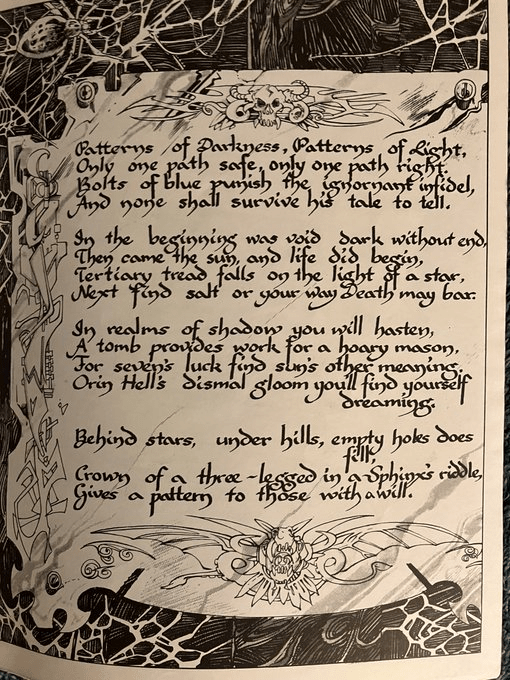 Patterns of Darkness, Patterns of Light,
Only one path safe, only one path right.
Bolts of blue punish the ignornant infidel,
And none shall survive his tale to tell.
In the beginning was void dark without end,
Then came the sun, and life did begin,
Tertiary tread falls on the light of a star,
Next find salt or your way Death may bar.
In realms of shadow you will hasten,
A tomb provides work for a hoary mason,
For seven's luck find sun's other meaning,
Or in Hell's dismal gloom you'll find yourself
dreaming.
Behind stars, under hills, empty holes does
fill,
Crown of a three-legged in a Sphinx's riddle,
Gives a pattern to those with a will.